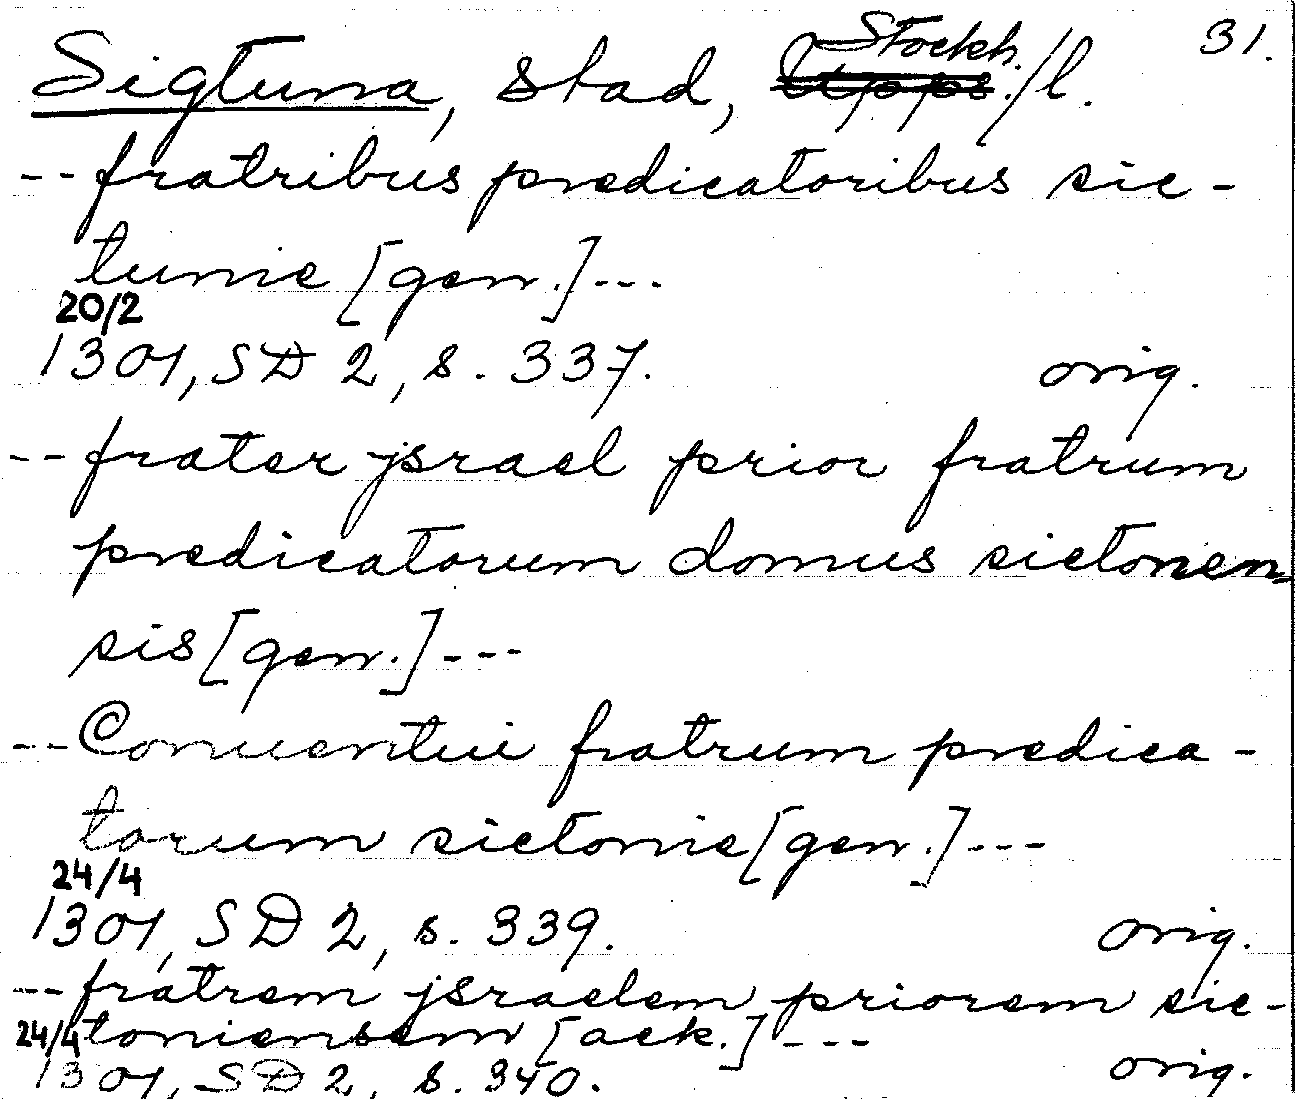 31.
Sigtuna, stad, Stockh./l.
--fratribus predicatoribus sic-
tunie [gen.]---
20/2
1301, SD 2, s. 337. orig.
--frater jsrael prior fratrum
predicatorum domus sictonen-
sis [gen.]---
--Conuentui fratrum predica-
torum sictonie [gen.]---
24/4
1301, SD 2, s. 339. orig.
--fratrem jsraelem priorem sic-
24/4 toniensem [ack.]---
1301, SD 2, s. 340. orig.